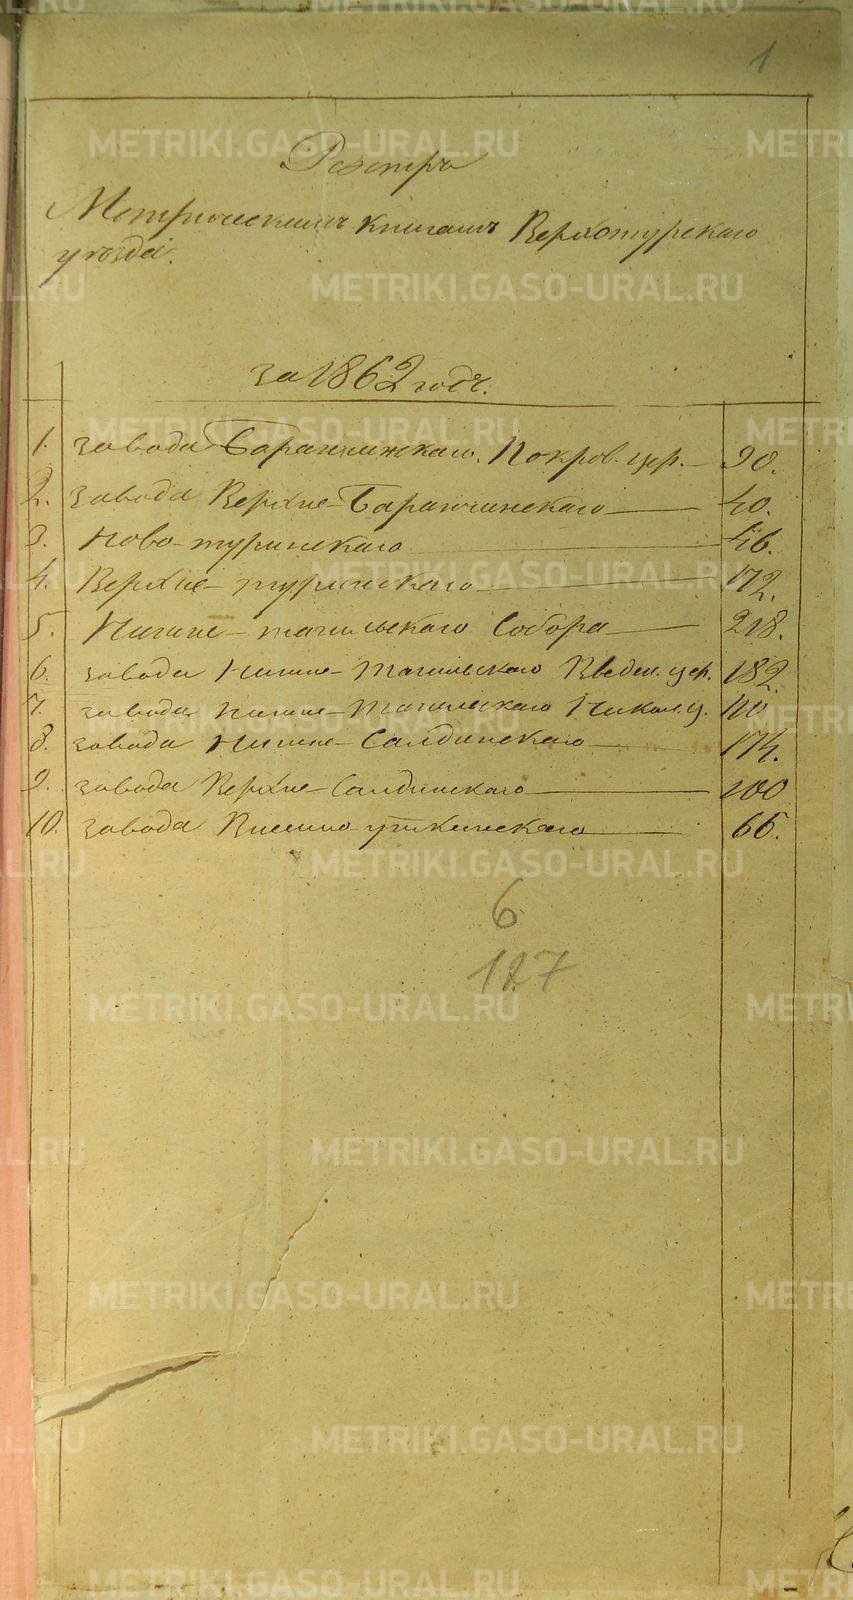 1
Реэстръ
Метрическимъ книгамъ Верхотурскаго
уѣзда.
за 1862 годъ.
1. завода Баранчинскаго. Покров. цер. — 90.
2. завода Верхне-Баранчинскаго — 40.
3. Ново-туринскаго — 46.
4. Верхне-туринскаго — 172.
5. Нижне-тагильскаго Собора — 218.
6. завода Нижне-Тагильскаго Введен. цер. 182.
7. завода Нижне-Тагильскаго Никол. ц. 110
8. завода Нижне-Салдинскаго — 174.
9. завода Верхне-Салдинскаго — 100
10. завода Висимо-уткинскаго — 66.
6
127
METRIKI.GASO-URAL.RU